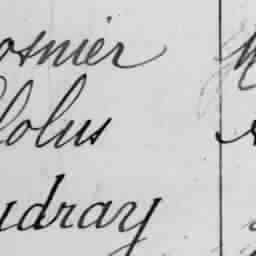 osnier
olus
udray